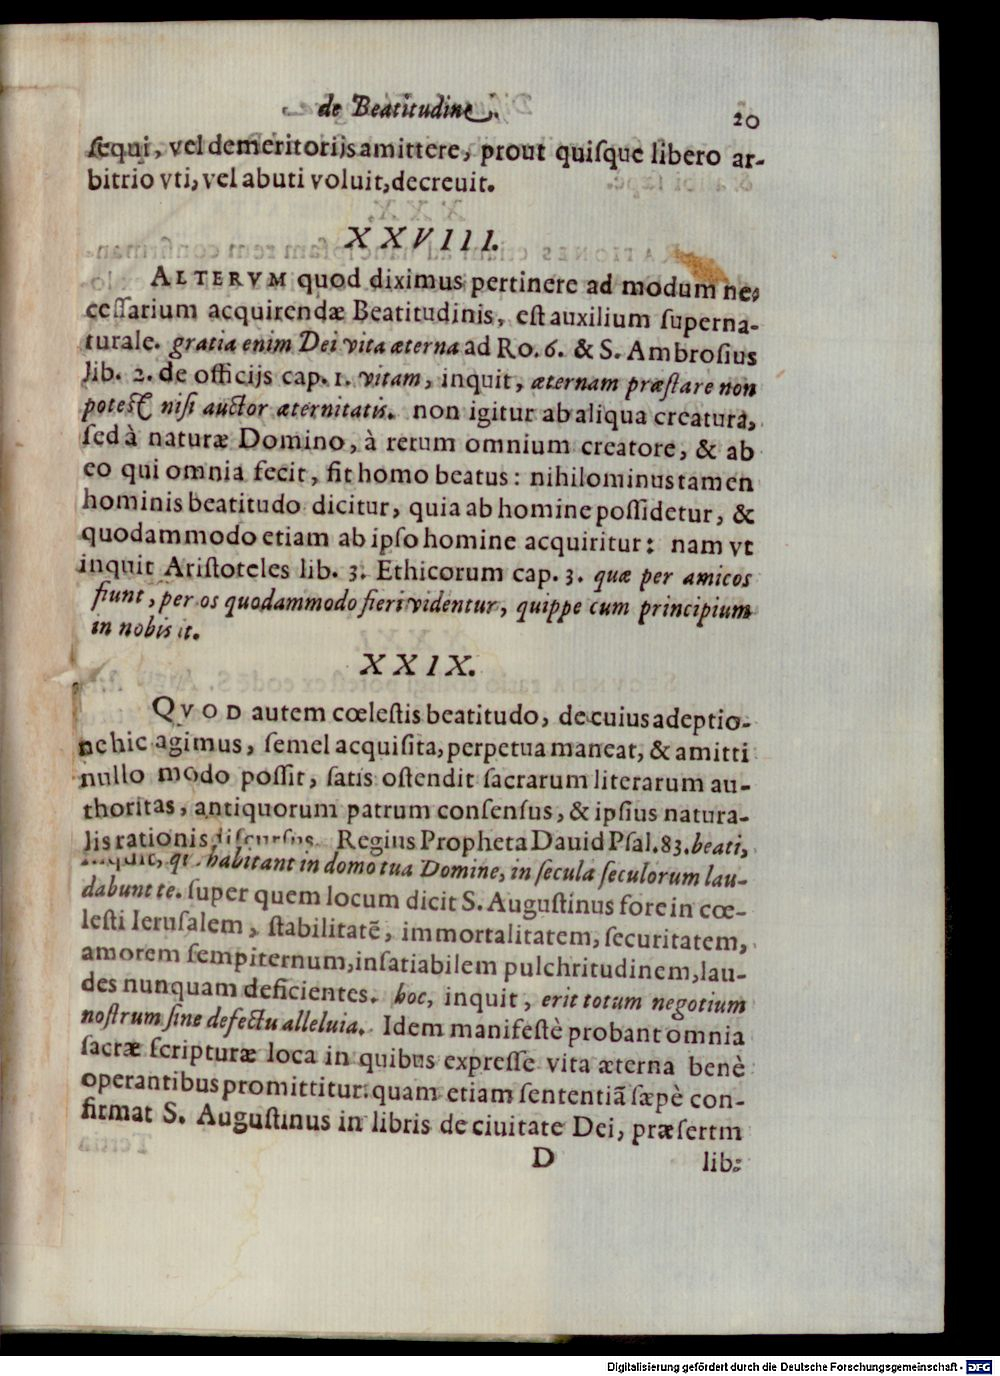 de Beatitudine.
20
ſequi, vel demeritorijs amittere, prout quiſque libero ar-
bitrio vti, vel abuti voluit, decreuit.
XXVIII.
ALTERVM quod diximus pertinere ad modum ne-
ceſſarium acquirendæ Beatitudinis, eſt auxilium ſuperna-
turale. gratia enim Dei vita æterna ad Ro. 6. & S. Ambroſius
lib. 2. de officijs cap. 1. vitam, inquit, æternam præſtare non
poteſt niſi auctor æternitatis. non igitur ab aliqua creatura,
ſed à naturæ Domino, à rerum omnium creatore, & ab
eo qui omnia fecit, fit homo beatus: nihilominus tamen
hominis beatitudo dicitur, quia ab homine poſſidetur, &
quodammodo etiam ab ipſo homine acquiritur: nam vt
inquit Ariſtoteles lib. 3. Ethicorum cap. 3. quæ per amicos
fiunt, per os quodammodo fieri videntur, quippe cum principium
in nobis it.
XXIX.
QVOD autem cœleſtis beatitudo, de cuius adeptio-
ne hic agimus, ſemel acquiſita, perpetua maneat, & amitti
nullo modo poſſit, ſatis oſtendit ſacrarum literarum au-
thoritas, antiquorum patrum conſenſus, & ipſius natura-
lis rationis diſcurſus. Regius Propheta Dauid Pſal. 83. beati,
inquit, qui habitant in domo tua Domine, in ſecula ſeculorum lau-
dabunt te. ſuper quem locum dicit S. Auguſtinus fore in cœ-
leſti Ieruſalem, ſtabilitatē, immortalitatem, ſecuritatem,
amorem ſempiternum, inſatiabilem pulchritudinem, lau-
des nunquam deficientes. hoc, inquit, erit totum negotium
noſtrum ſine defectu alleluia. Idem manifeſtè probant omnia
ſacræ ſcripturæ loca in quibus expreſſe vita æterna benè
operantibus promittitur: quam etiam ſententiā ſæpè con-
firmat S. Auguſtinus in libris de ciuitate Dei, præſertm
D
lib.
Digitalisierung gefördert durch die Deutsche Forschungsgemeinschaft - DFG